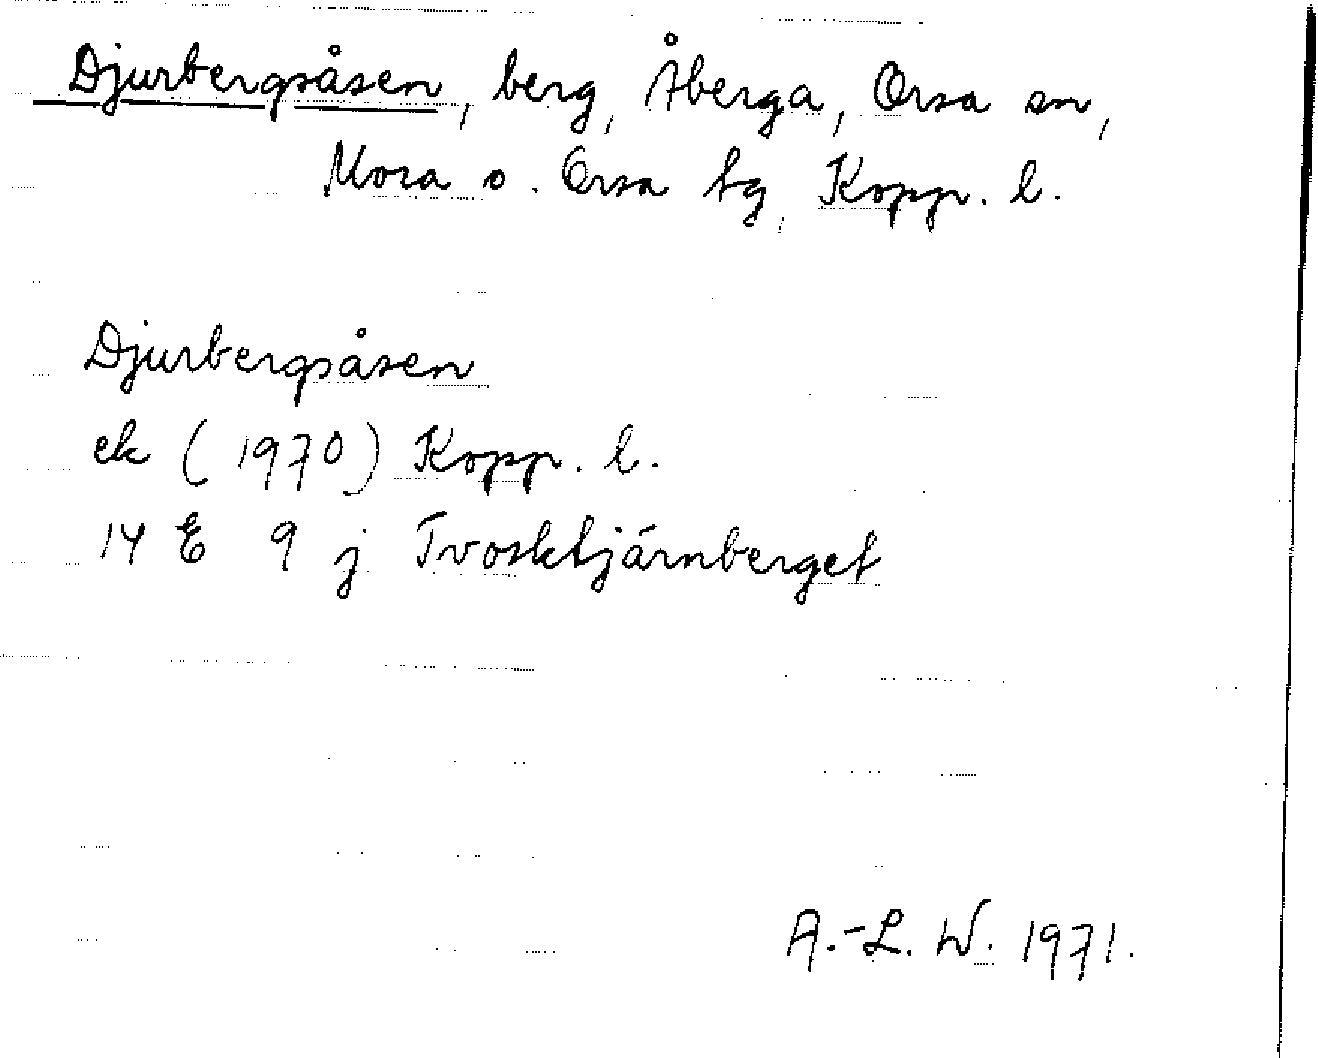 Djurbergsåsen, berg, Åberga, Orsa sn,
Mora o. Orsa tg, Kopp. l.
Djurbergsåsen
ek (1970) Kopp. l.
14 E 9 j Tvosktjärnberget
A.-L. W. 1971.